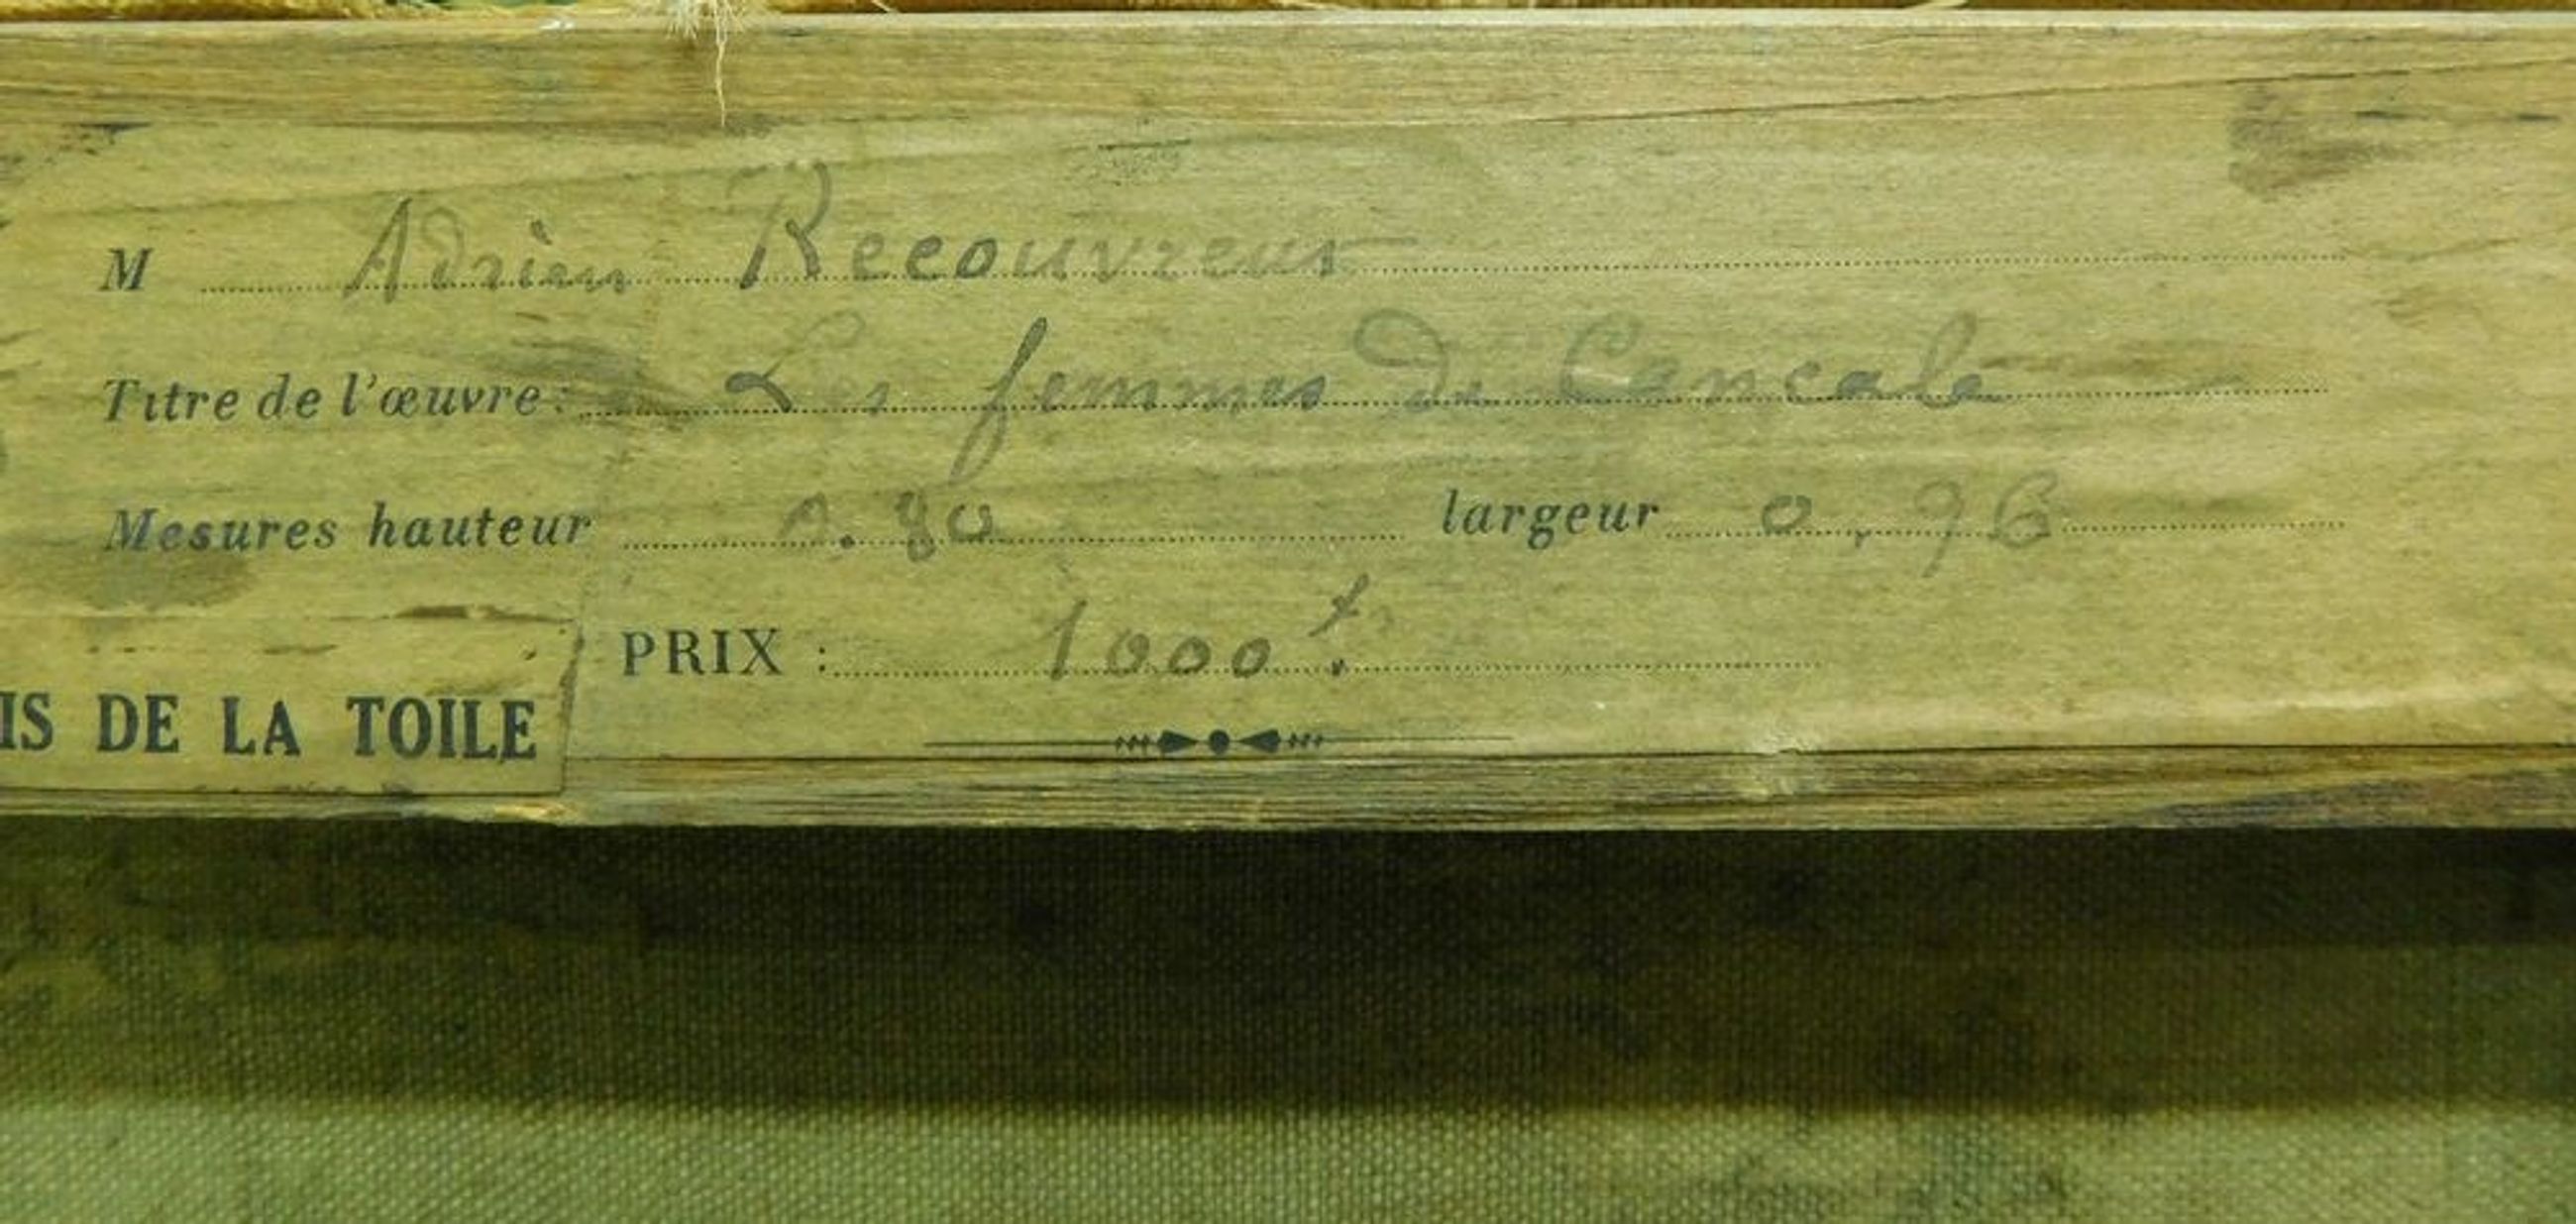 M Adrien Recouvreur
Titre de l'œuvre: Les femmes de Cancale
Mesures hauteur 0.80 largeur 0,96
PRIX : 1000 f.
IS DE LA TOILE